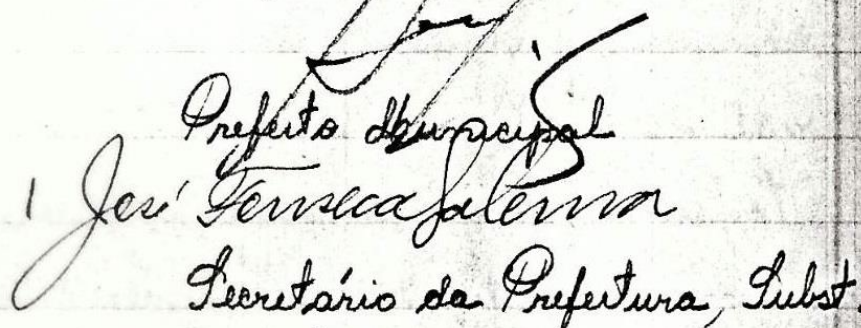 Prefeito Municipal
José Fonseca Salerma
Secretário da Prefeitura, Subst